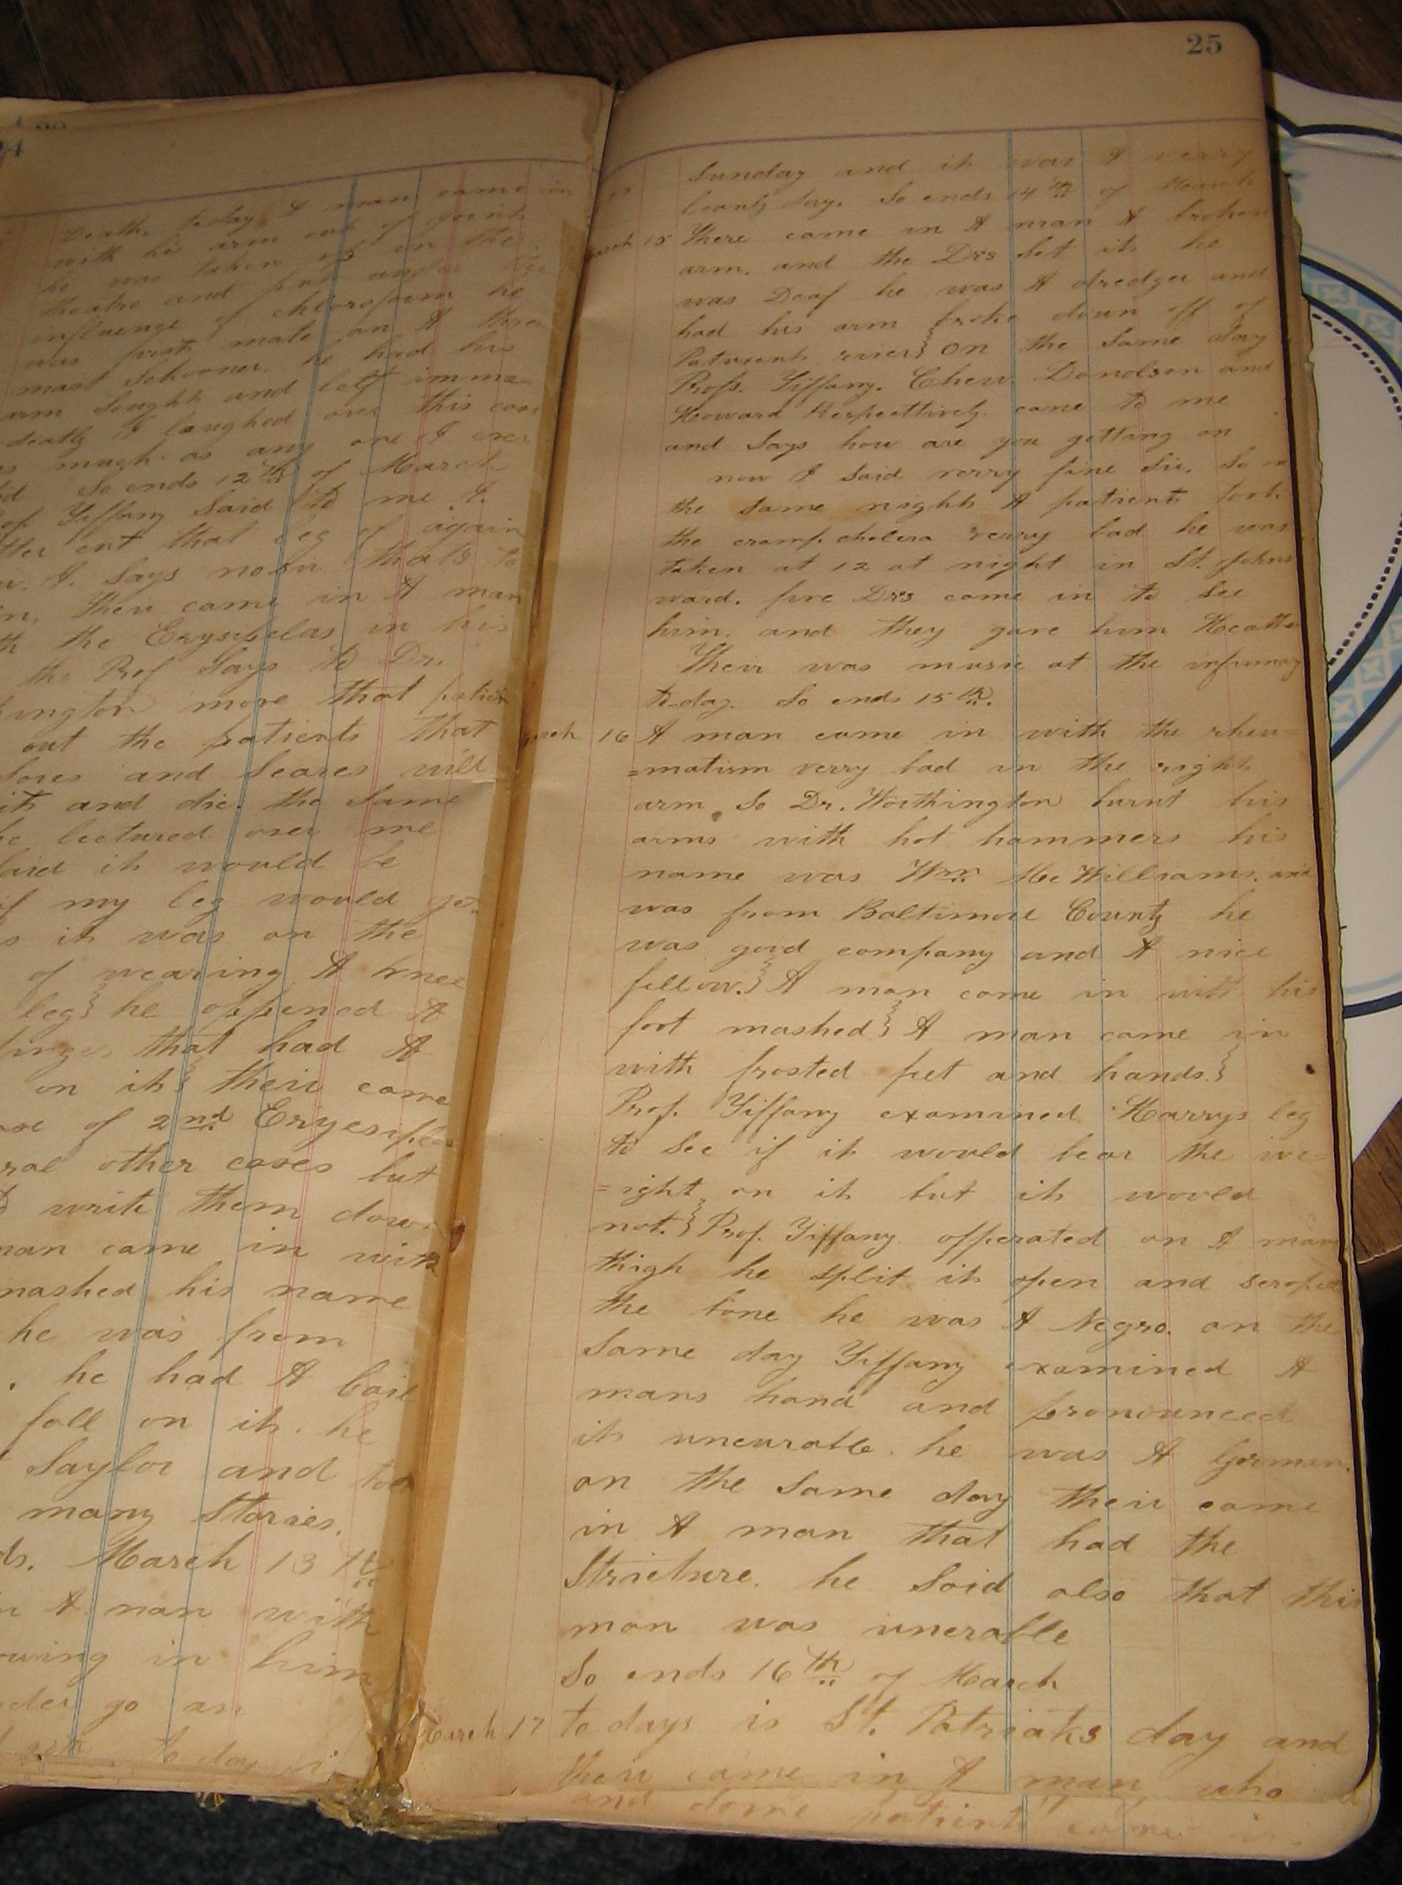 Death, today A man came in
with his arm out of joint
he was taken up in the
theatre and put under the
influence of chloroform he
was first mate on A three
mast Schooner, he had his
arm sought and left imme-
deatly I laughed over this case
as much as any one I ever
did So ends 12th of March
Prof Tiffany Said to me I
cut that leg of again
I says noow thats to
Their came in A man
the Erysipelas in his
the Prof Says to Dr.
move that patient
out the patients that
Sores and Scares will
it and die. the Same
he lectured over me
Said it would be
if my leg would get
it was on the
of wearing A knee
leg} he oppened A
that had A
on it} their came
of 2nd Eryesiplas
other cases but
write them down
man came in with
mashed his name
he was from
he had A
fall on it. he
Saylor and told
many Stories.
March 13th
A man with
in him
go an
to day
25
Sunday and it was A verry
lonly day. So ends 14th of March
March 15 There came in A man A broken
arm. and the Drs Set it he
was Deaf he was A dredger and
had his arm broke down off of
Patuxent river} on the Same day
Profs. Tiffany. Chew. Donolson and
Howard Respecttively. came to me
and Says how are you getting on
now I Said verry fine Sir. So on
the Same night A patient took
the cramp cholera verry bad he was
taken at 12 at night in St. Johns
ward. five Drs came in to See
him. and they gave him
Their was music at the infirmary
to-day. So ends 15th.
March 16 A man came in with the rheu=
=matism verry bad in the right
arm. So Dr. Worthington burnt his
arms with hot hammers his
name was Wm McWilliams. and
was from Baltimore County he
was good company and A nice
fellow.} A man come in with his
foot mashed} A man came in
with frosted feet and hands.}
Prof. Tiffany examined Harrys leg
to See if it would bear the we=
=ight on it but it would
not.} Prof. Tiffany. opperated on A mans
thigh he split it open and scraped
the bone he was A Negro. on the
Same day Tiffany examined A
mans hand and pronounced
it uncurable. he was A German.
on the Same day their came
in A man that had the
Stricture. he Said also that this
man was unerable
So ends 16th of March
March 17 to days is St. Patriaks day and
their came in A man who
and patients came in